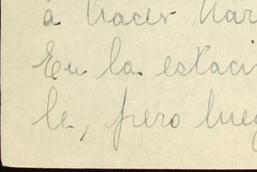 á hacer har
En la estaci
le, pero lueg